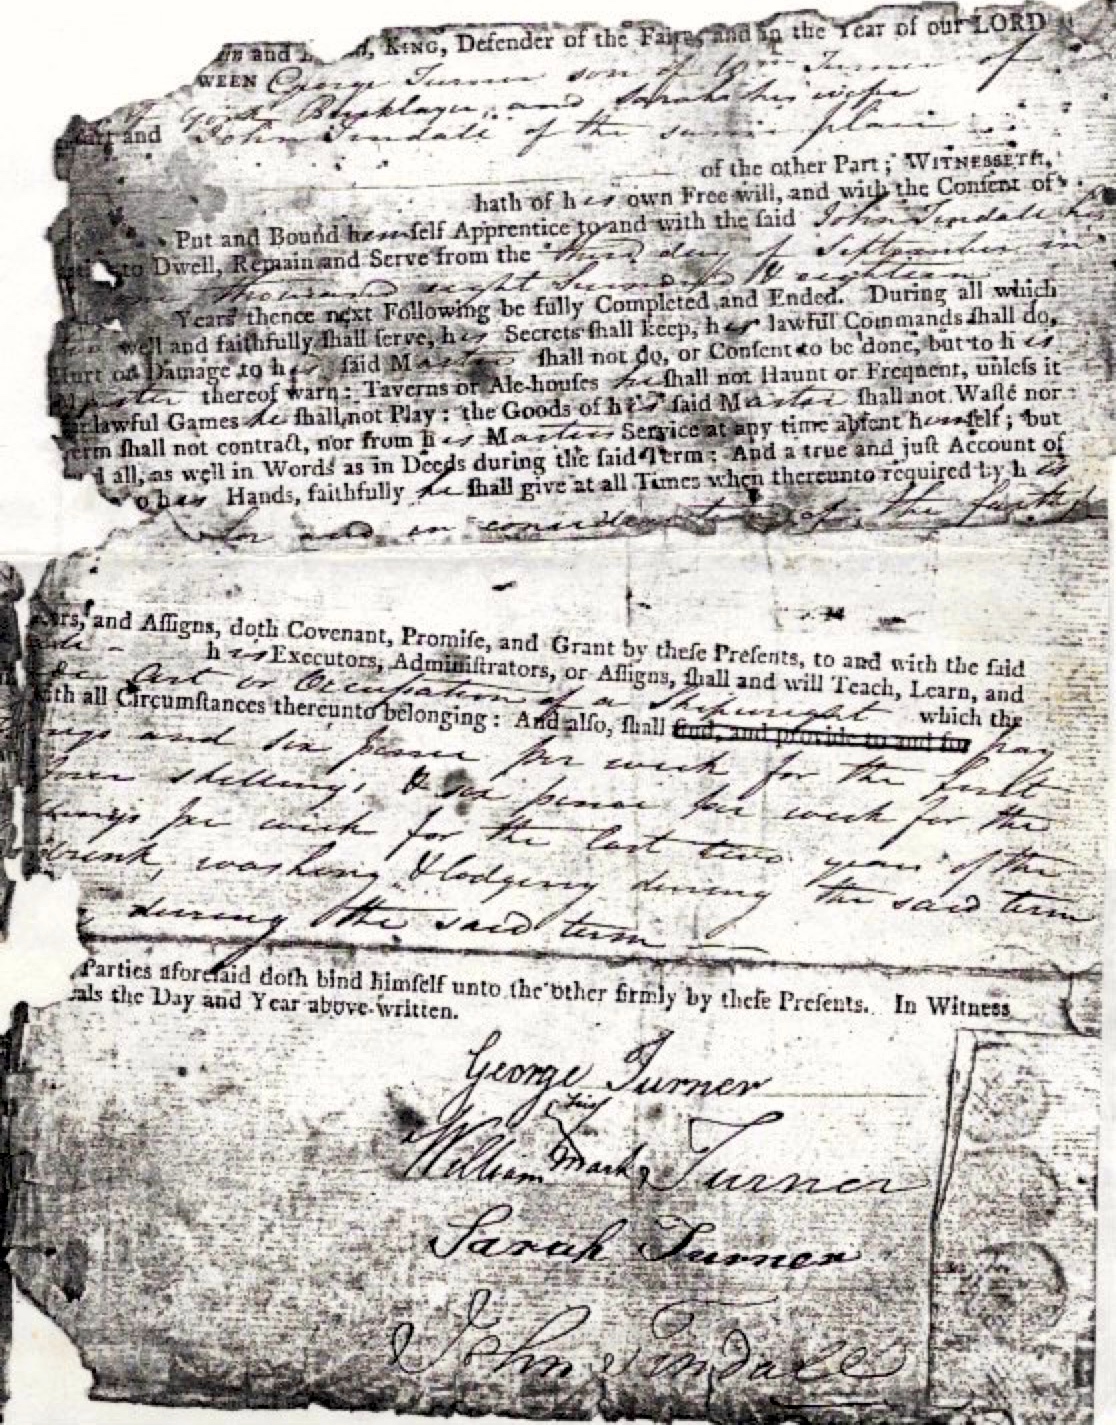 and , KING, Defender of the Faith, and in the Year of our LORD
WEEN George Turner son of Wm Turner of
York and Sarah his wife
and John Tindale of the same place
of the other Part; WITNESSETH,
hath of his own Free will, and with the Conſent of
Put and Bound himſelf Apprentice to and with the ſaid John Tindale his
to Dwell, Remain and Serve from the third day of September in
thousand eight hundred & eighteen
Years thence next Following be fully Completed and Ended. During all which
well and faithfully ſhall ſerve, his Secrets ſhall keep, his lawfull Commands ſhall do,
Hurt or Damage to his ſaid Master ſhall not do, or Conſent to be done, but to his
Master thereof warn: Taverns or Ale-houſes he ſhall not Haunt or Frequent, unleſs it
lawful Games he ſhall not Play: the Goods of his ſaid Master ſhall not Waſte nor
ſhall not contract, nor from his Masters Service at any time abſent himſelf; but
all, as well in Words as in Deeds during the ſaid Term: And a true and juſt Account of
his Hands, faithfully he ſhall give at all Times when thereunto required by his
for and in consideration of the
and Aſſigns, doth Covenant, Promiſe, and Grant by theſe Preſents, to and with the ſaid
his Executors, Adminiſtrators, or Aſſigns, ſhall and will Teach, Learn, and
Art or Occupation of a Shipwright which the
all Circumſtances thereunto belonging: And alſo, ſhall find, and provide to and for pay
and six pence per week for the first
shillings & six pence per week for the
per week for the last two years of the
washing & lodging during the said term
during the said term
Parties aforeſaid doth bind himſelf unto the other firmly by theſe Preſents. In Witneſs
the Day and Year above-written.
George Turner
his
William Mark Turner
Sarah Turner
John Tindale